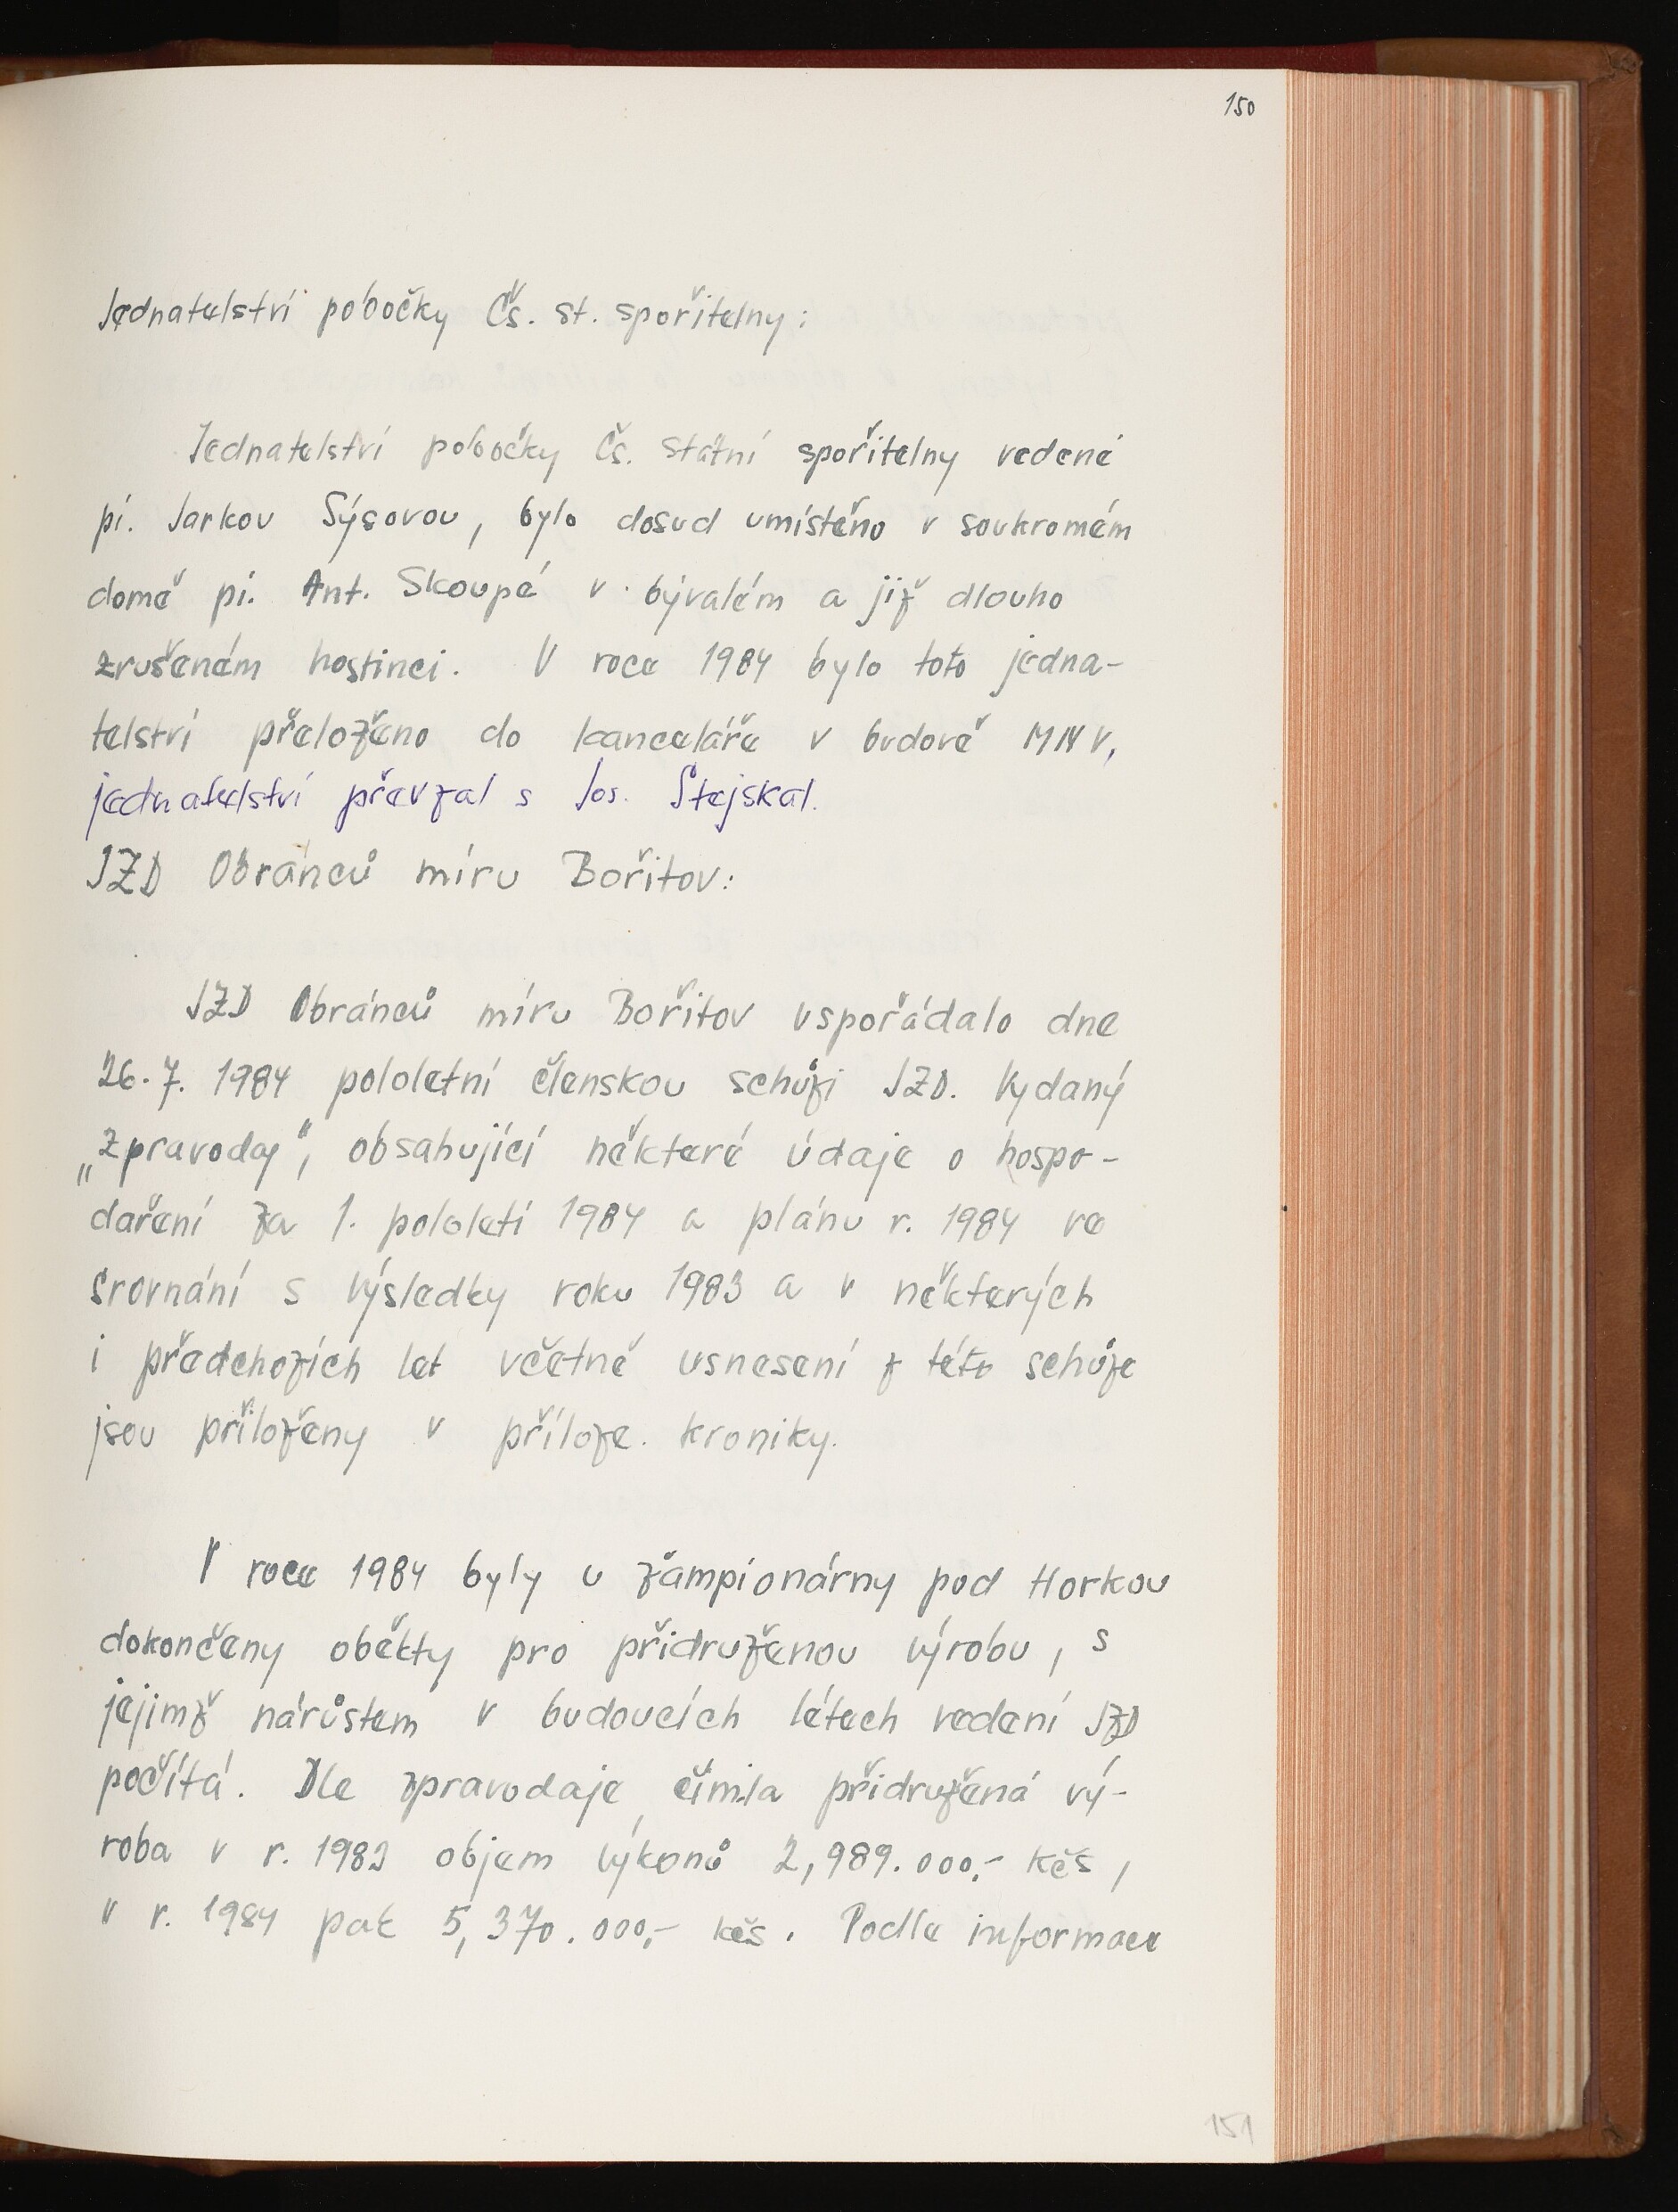 150
Jednatelství pobočky Čs. st. spořitelny:
Jednatelství pobočky Čs. státní spořitelny vedené
pí. Jarkou Sýsovou, bylo dosud umístěno v soukromém
domě pí. Ant. Skoupé v bývalém a již dlouho
zrušeném hostinci. V roce 1984 bylo toto jedna-
telství přeloženo do kanceláře v budově MNV,
jednatelství převzal s Jos. Stejskal.
JZD Obránců míru Bořitov:
JZD Obránců míru Bořitov uspořádalo dne
26.7. 1984 pololetní členskou schůzi JZD. Vydaný
„Zpravodaj", obsahující některé údaje o hospo-
daření za 1. pololetí 1984 a plánu r. 1984 ve
srovnání s výsledky roku 1983 a v některých
i předchozích let včetně usnesení z této schůze
jsou přiloženy v příloze kroniky.
V roce 1984 byly u žampionárny pod Horkou
dokončeny oběkty pro přidruženou výrobu, s
jejímž nárůstem v budoucích létech vedení JZD
počítá. Dle zpravodaje činila přidružená vý-
roba v r. 1983 objem výkonů 2,989.000,- Kčs,
v r. 1984 pak 5,370.000,- kčs. Podle informace
151